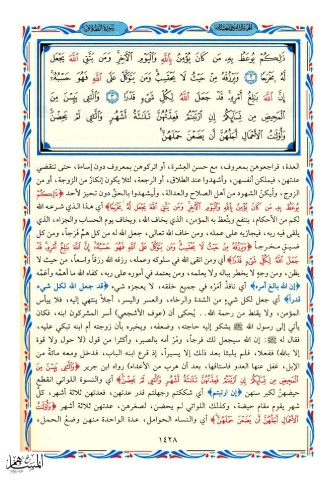 ذَٰلِكُمْ يُوعَظُ بِهِ مَن كَانَ يُؤْمِنُ بِاللَّهِ وَالْيَوْمِ الْآخِرِ وَمَن يَتَّقِ اللَّهَ يَجْعَل
لَّهُ مَخْرَجًا ٢ وَيَرْزُقْهُ مِنْ حَيْثُ لَا يَحْتَسِبُ وَمَن يَتَوَكَّلْ عَلَى اللَّهِ فَهُوَ حَسْبُهُ
إِنَّ اللَّهَ بَالِغُ أَمْرِهِ قَدْ جَعَلَ اللَّهُ لِكُلِّ شَيْءٍ قَدْرًا ٣ وَاللَّائِي يَئِسْنَ مِنَ
الْمَحِيضِ مِن نِّسَائِكُمْ إِنِ ارْتَبْتُمْ فَعِدَّتُهُنَّ ثَلَاثَةُ أَشْهُرٍ وَاللَّائِي لَمْ يَحِضْنَ
وَأُولَاتُ الْأَحْمَالِ أَجَلُهُنَّ أَن يَضَعْنَ حَمْلَهُنَّ
العدة، فراجعوهن بمعروف، مع حسن العِشرة، أو اتركوهن بمعروف دون إساءة، حتى تنقضي
عدتهن، فيملكن أنفسهن، وأشهدوا عند الطلاق، أو الرجعة، لئلا يكون إنكارٌ من الزوجة، أو من
الزوج، وليكنْ الشهود من أهل الصلاح والعدالة، وليشهدوا بالحقّ دون تحيز لأحد ﴿ذَٰلِكُمْ
يُوعَظُ بِهِ مَن كَانَ يُؤْمِنُ بِاللَّهِ وَالْيَوْمِ الْآخِرِ وَمَن يَتَّقِ اللَّهَ يَجْعَل لَّهُ مَخْرَجًا﴾ أي هذا الذي شرعه الله
لكم من الأحكام، ينتفع ويتّعظ به المؤمن، الذي يخاف الله، ويخاف يوم الحساب والجزاء، الذي
يلقى فيه ربه، فيجازيه على عمله، ومن خاف الله تعالى، جعل الله له من كل همٍّ فرَجاً، ومن كل
ضيقٍ مخرجاً ﴿وَيَرْزُقْهُ مِنْ حَيْثُ لَا يَحْتَسِبُ وَمَن يَتَوَكَّلْ عَلَى اللَّهِ فَهُوَ حَسْبُهُ إِنَّ اللَّهَ بَالِغُ أَمْرِهِ قَدْ
جَعَلَ اللَّهُ لِكُلِّ شَيْءٍ قَدْرًا﴾ أي ومن اتقى الله في سلوكه وعمله، رزقه الله رزقاً واسعاً، من حيث لا
يظن، ومن وجهٍ لا يخطر بباله ولا يعلمه، ومن يعتمد في أموره على ربه، كفاه الله ما أهمه وأغمّه
﴿إن الله بالغ أمره﴾ أي نافذٌ أمرُه في جميع خلقه، لا يعجزه شيء ﴿قد جعل الله لكل شيء
قدراً﴾ أي جعل لكل شيءٍ من الشدة والرخاء، والعسر واليسر، أجلاً ينتهي إليه، فلا ييأس
المؤمن، ولا يقنط من رحمة الله .. يُحكى أن (عوف الأشجعي) أسر المشركون ابنه، فكان
يأتي إلى رسول الله ﷺ يشكو إليه حاجته، وضعفه، ويخبره بأن زوجته أم ابنه تبكي عليه،
فقال له ﷺ: إن الله سيجعل لك فرجاً، ومُرْ أمه بالصبر، وأكثرا من قول (لا حول ولا قوة
إلا بالله) ففعلا، فلم يلبثا بعد ذلك إلا يسيراً، إذ قرع ابنه الباب، فدخل ومعه مائة من
الإبل، غفل عنها العدو فاستاقها، بعد أن هرب من الأعداء) رواه ابن جرير ﴿وَاللَّائِي يَئِسْنَ مِنَ
الْمَحِيضِ مِن نِّسَائِكُمْ إِنِ ارْتَبْتُمْ فَعِدَّتُهُنَّ ثَلَاثَةُ أَشْهُرٍ وَاللَّائِي لَمْ يَحِضْنَ﴾ أي والنسوة اللواتي انقطع
حيضهنّ لكبر سنهن ﴿إن ارتبتم﴾ أي شككتم وجهلتم قدر عدتهن، فعدتهن ثلاثة أشهر، كل
شهر يقوم مقام حيضة، وكذلك اللواتي لم يحضن، لصغرهن، عدتهن ثلاثة أشهر ﴿وَأُولَاتُ
الْأَحْمَالِ أَجَلُهُنَّ أَن يَضَعْنَ حَمْلَهُنَّ﴾ أي والنساء الحوامل، عدة الواحدة منهن وضعُ الحمل،
١٤٢٨